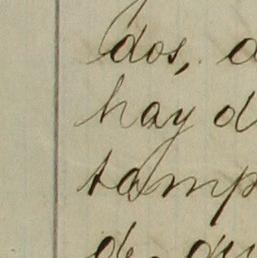 dos,
hay d
tamp
de